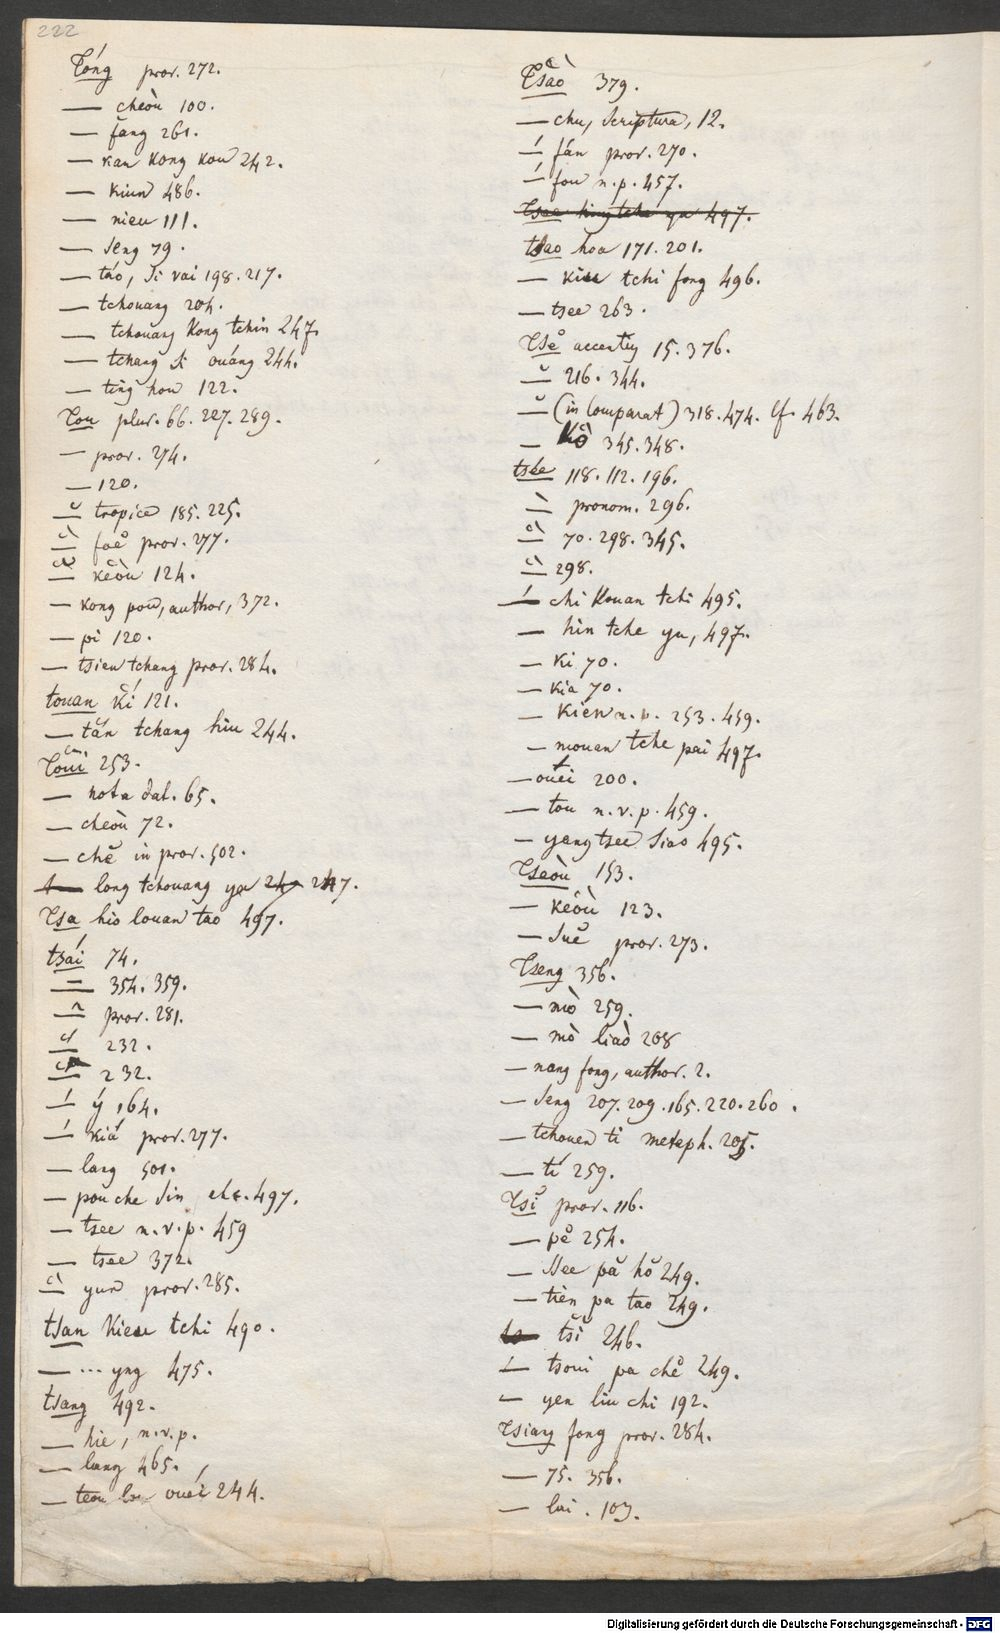 222
Tóng pror. 272.
— cheóu 100.
— fang 261.
— kan kong kou 242.
— kiun 486.
— nieu 111.
— seng 79.
— táo, Si vai 198. 217.
— tchouang 204.
— tchouang kong tchin 247.
— tchang ti ouáng 244.
— ting hou 122.
Tou plur. 66. 227. 289.
— pror. 274.
— 120.
— tropice 185. 225.
— foĕ pror. 277.
— keòu 124.
— kong pou, author, 372.
— pi 120.
— tsien tchang pror. 284.
touan kí 121.
— tăn tchang hiu 244.
Toui 253.
— nota dat. 65.
— cheòu 72.
— chĕ in pror. 502.
— long tchouang ya 247.
Tsa hio louan tao 497.
tsái 74.
— 354. 359.
— pror. 281.
— 232.
— 232.
— ý 164.
— kiá pror. 277.
— lang 501.
— pou che sin, etc. 497.
— tsee n.v.p. 459
— tsee 372.
— yun pror. 285.
tsan kieu tchi 490.
— ... yng 475.
tsang 492.
— hie, n.v.p.
— lang 465.
— teou lou ouéi 244.
Tsào 379.
— chu, Scriptura, 12.
— fán pror. 270.
— fou n.p. 457.
Tsae king tche ya 497.
tsao hoa 171. 201.
— kieu tchi fong 496.
— tsee 263.
Tsĕ accentus 15. 376.
— 216. 344.
— (in comparat) 318. 474. cf. 463.
— kò 345. 348.
tsée 118. 112. 196.
— pronom. 296.
— 70. 298. 345.
— 298.
— chi kouan tchi 495.
— hin tche yu, 497.
— ki 70.
— kia 70.
— kien n.p. 253. 459.
— mouan tche pai 497.
— ouei 200.
— tou n.v.p. 459.
— yang tsee siao 495.
Tseòu 153.
— keòu 123.
— suĕ pror. 273.
Tseng 356.
— mò 259.
— mò liaò 208
— nang fong, author. 2.
— seng 207. 209. 165. 220. 260.
— tchouen ti metaph. 205.
— tí 259.
Tsĭ pror. 116.
— pĕ 254.
— ssee pă hŏ 249.
— tien pa tao 249.
— tsĭ 246.
— tsoui pa chĕ 249.
— yen liu chi 192.
Tsiang fong pror. 284.
— 75. 356.
— lai. 103.
Digitalisierung gefördert durch die Deutsche Forschungsgemeinschaft - DFG